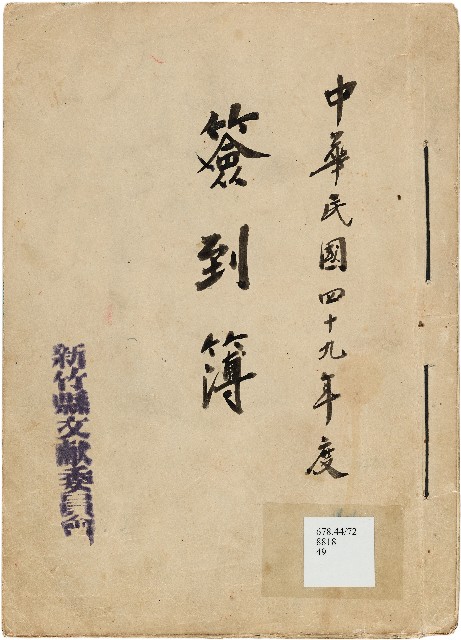 中華民國四十九年度
簽到簿
新竹縣文獻委員會
678.44/72
8818
49